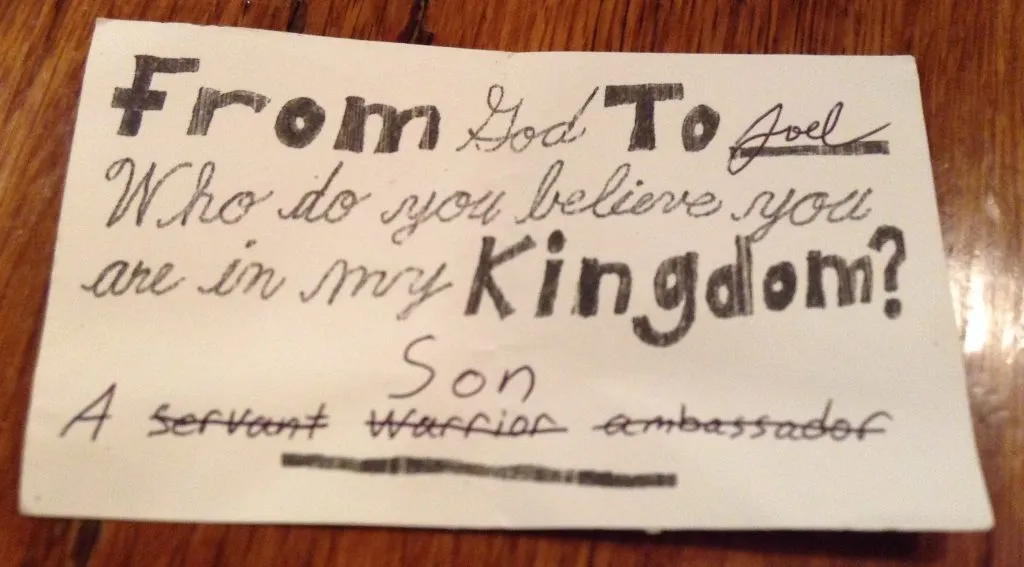 From God To Joel
Who do you believe you
are in my Kingdom?
Son
A servant Warrior ambassador